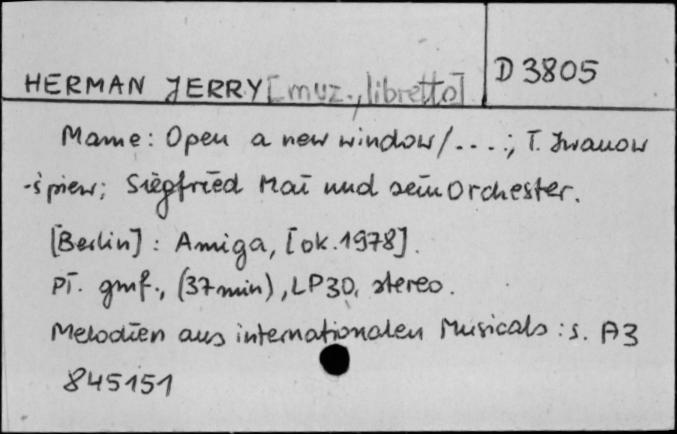 HERMAN JERRY [muz., libretto]
D 3805
Mame: Open a new window/....; T. Iwanow
-śpiew; Siegfried Mai und sein Orchester.
[Berlin]: Amiga, [ok. 1978].
Pł. gmf., (37 min), LP30, stereo.
Melodien aus internationalen Musicals: s. A3
845151